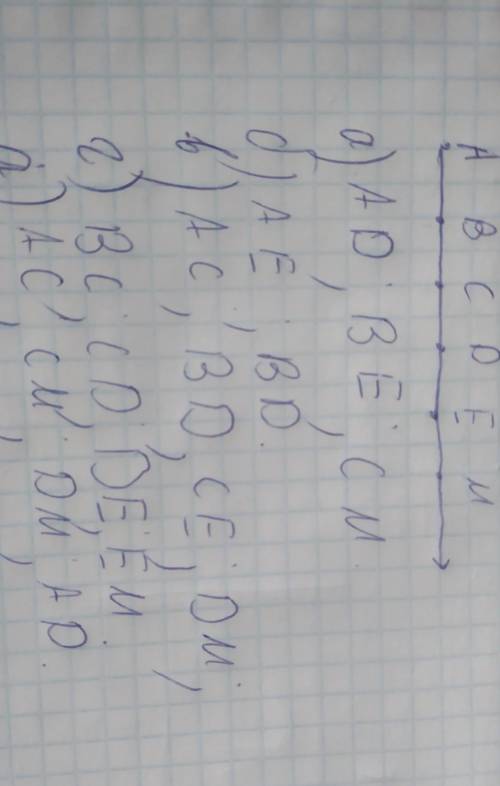 A B C D E M
а) AD; BE; CM
б) AE; BD.
в) AC, BD, CE; DM;
г) BC; CD, DE, EM.
д) AC, CM; DM, AD.